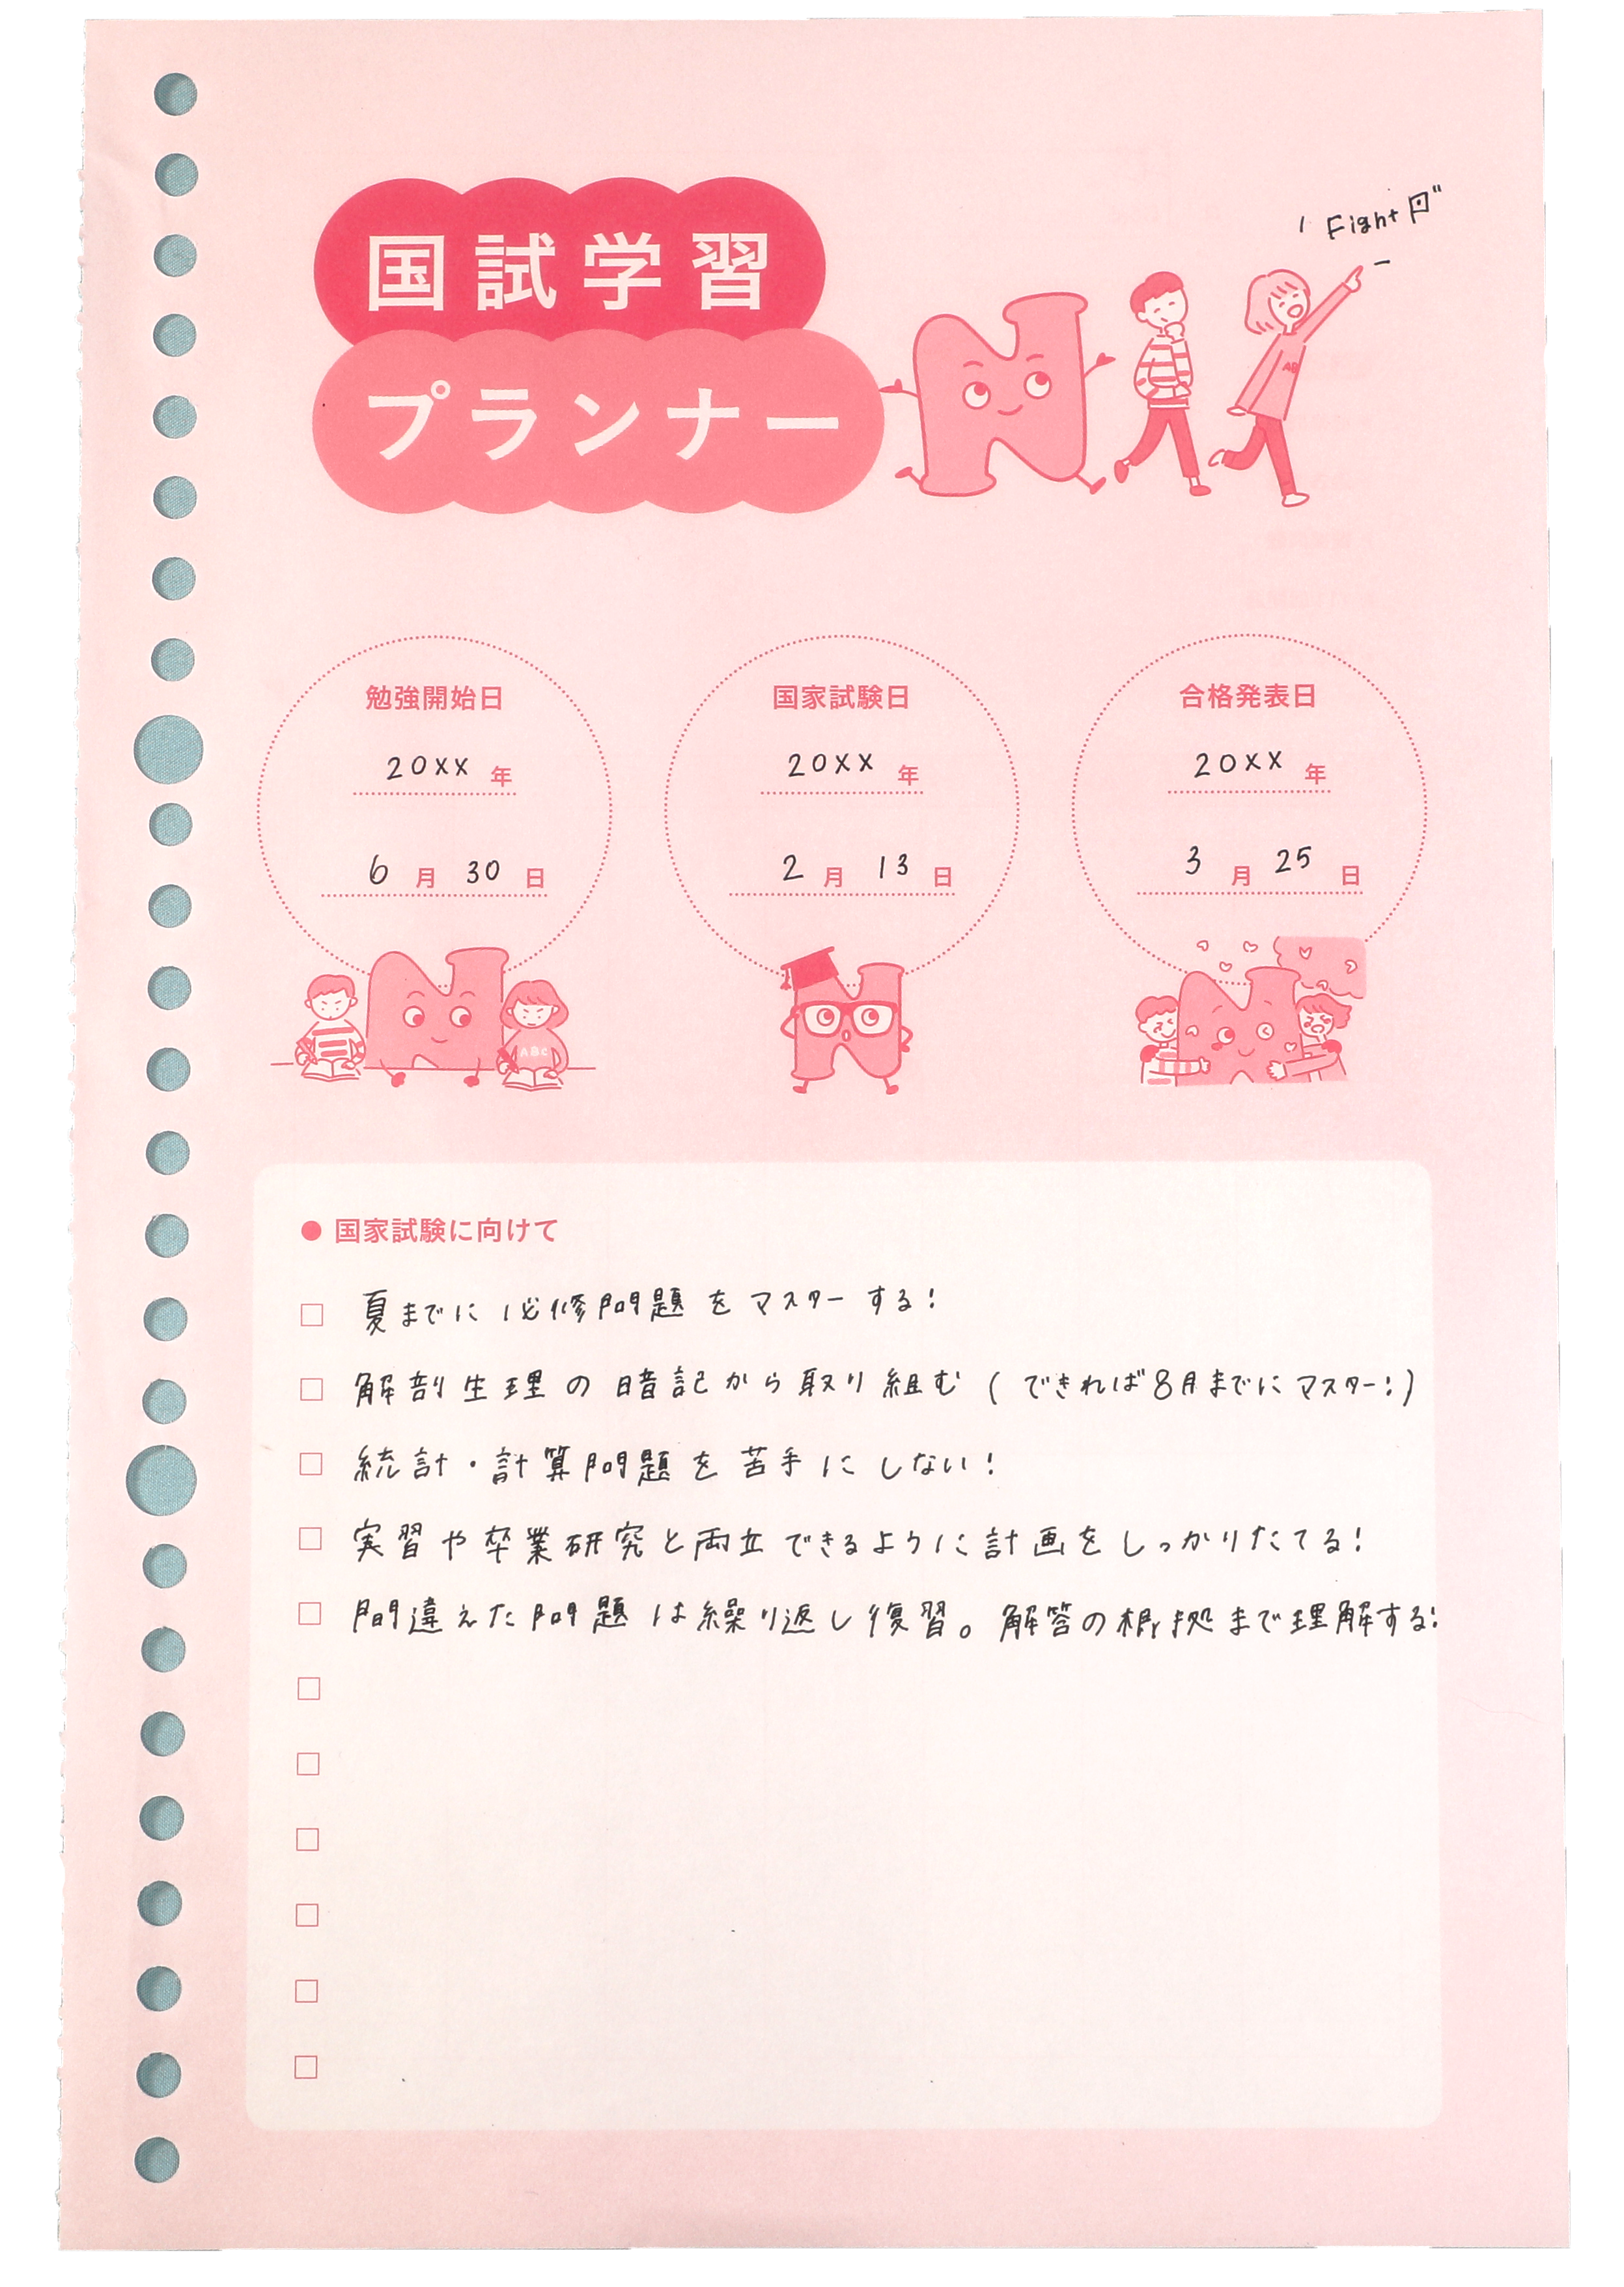 国試学習
プランナー
Fight
勉強開始日
20XX 年
6 月 30 日
国家試験日
20XX 年
2 月 13 日
合格発表日
20XX 年
3 月 25 日
ABC
国家試験に向けて
夏までに必修問題をマスターする!
解剖生理の暗記から取り組む(できれば8月までにマスター!)
統計・計算問題を苦手にしない!
実習や卒業研究と両立できるように計画をしっかりたてる!
間違えた問題は繰り返し復習。解答の根拠まで理解する!